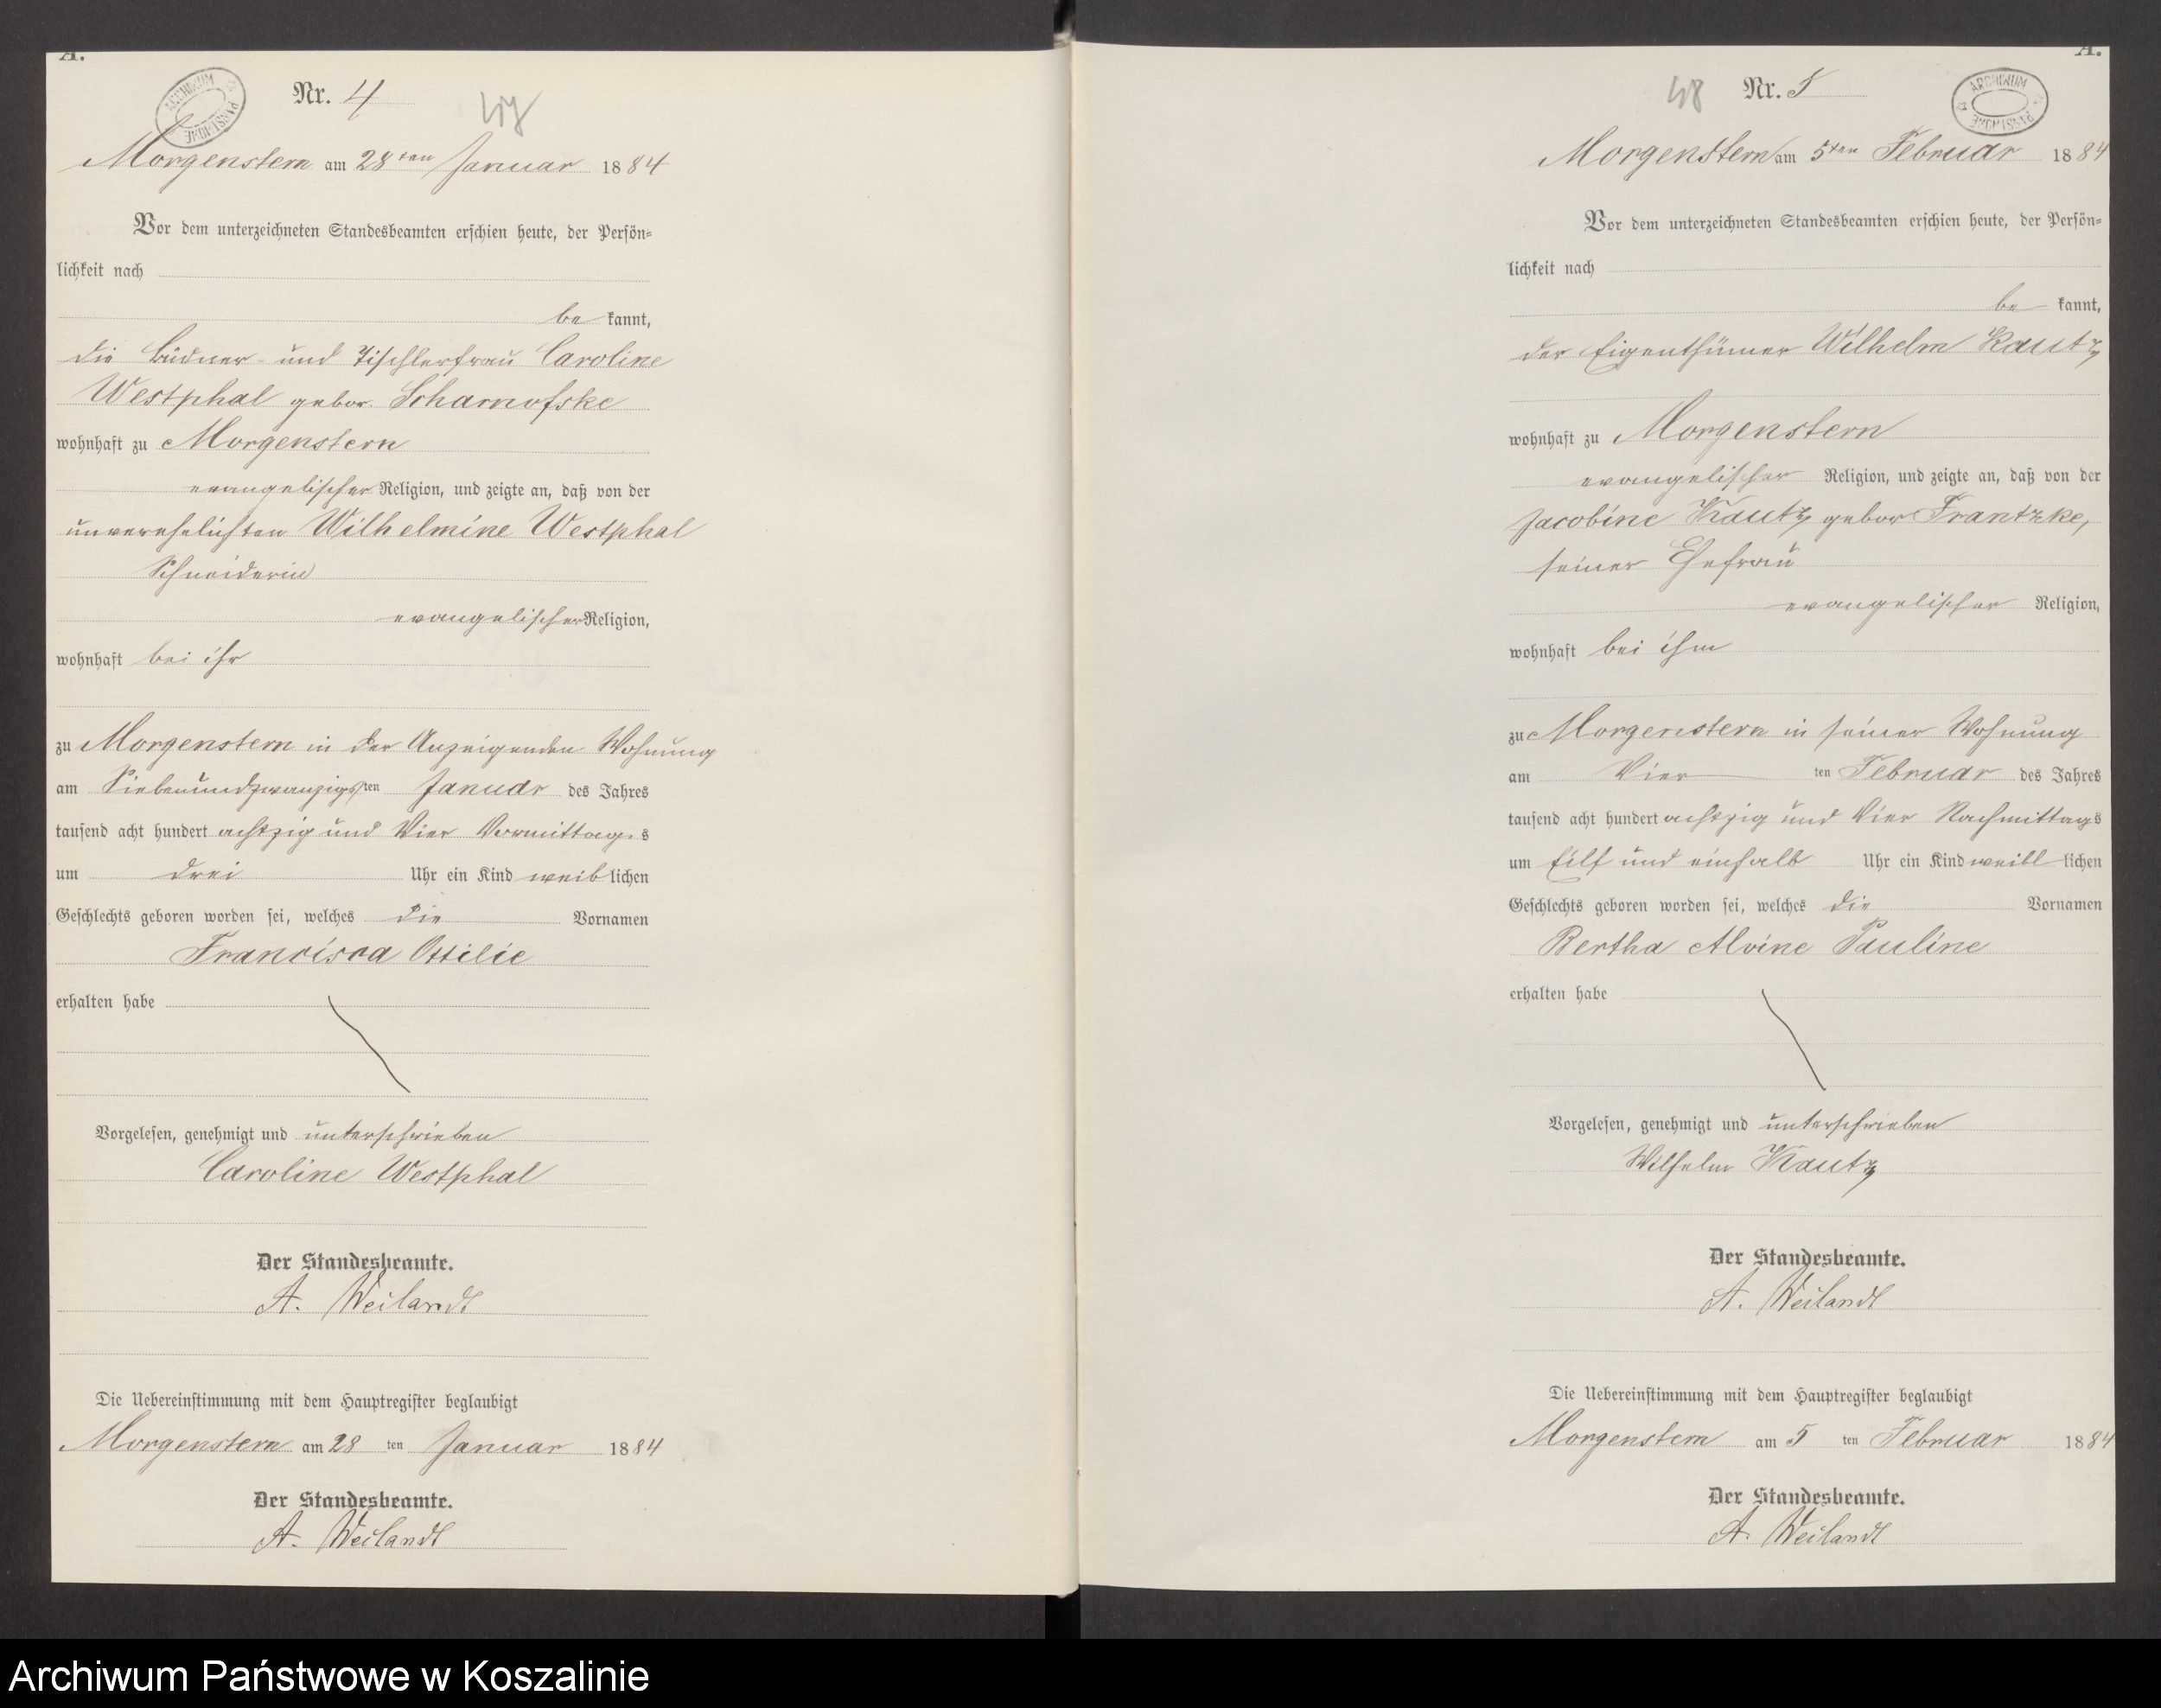 A.
ARCHIWUM PAŃSTWOWE
Nr. 4
47
Morgenstern am 28ten Januar 1884
Vor dem unterzeichneten Standesbeamten erschien heute, der Persön=
lichkeit nach
be kannt,
die Büdner- und Tischlerfrau Caroline
Westphal gebor. Scharnofske
wohnhaft zu Morgenstern
evangelischer Religion, und zeigte an, daß von der
unverehelichten Wilhelmine Westphal
Schneiderin
evangelischer Religion,
wohnhaft bei ihr
zu Morgenstern in der Anzeigenden Wohnung
am Siebenundzwanzigsten Januar des Jahres
tausend acht hundert achtzig und Vier Vormittags
um drei Uhr ein Kind weiblichen
Geschlechts geboren worden sei, welches die Vornamen
Francisca Ottilie
erhalten habe
Vorgelesen, genehmigt und unterschrieben
Caroline Westphal
Der Standesbeamte.
A. Weilandt
Die Uebereinstimmung mit dem Hauptregister beglaubigt
Morgenstern am 28 ten Januar 1884
Der Standesbeamte.
A. Weilandt
A.
48
Nr. 5
ARCHIWUM PAŃSTWOWE
Morgenstern am 5ten Februar 1884
Vor dem unterzeichneten Standesbeamten erschien heute, der Persön=
lichkeit nach
be kannt,
der Eigenthümer Wilhelm Kautz
wohnhaft zu Morgenstern
evangelischer Religion, und zeigte an, daß von der
Jacobine Kautz gebor Frantzke,
seiner Ehefrau
evangelischer Religion,
wohnhaft bei ihm
zu Morgenstern in seiner Wohnung
am Vier ten Februar des Jahres
tausend acht hundert achtzig und Vier Nachmittags
um Eilf und einhalb Uhr ein Kind weibl lichen
Geschlechts geboren worden sei, welches die Vornamen
Bertha Alvine Pauline
erhalten habe
Vorgelesen, genehmigt und unterschrieben
Wilhelm Kautz
Der Standesbeamte.
A. Weilandt
Die Uebereinstimmung mit dem Hauptregister beglaubigt
Morgenstern am 5 ten Februar 1884
Der Standesbeamte.
A. Weilandt
Archiwum Państwowe w Koszalinie